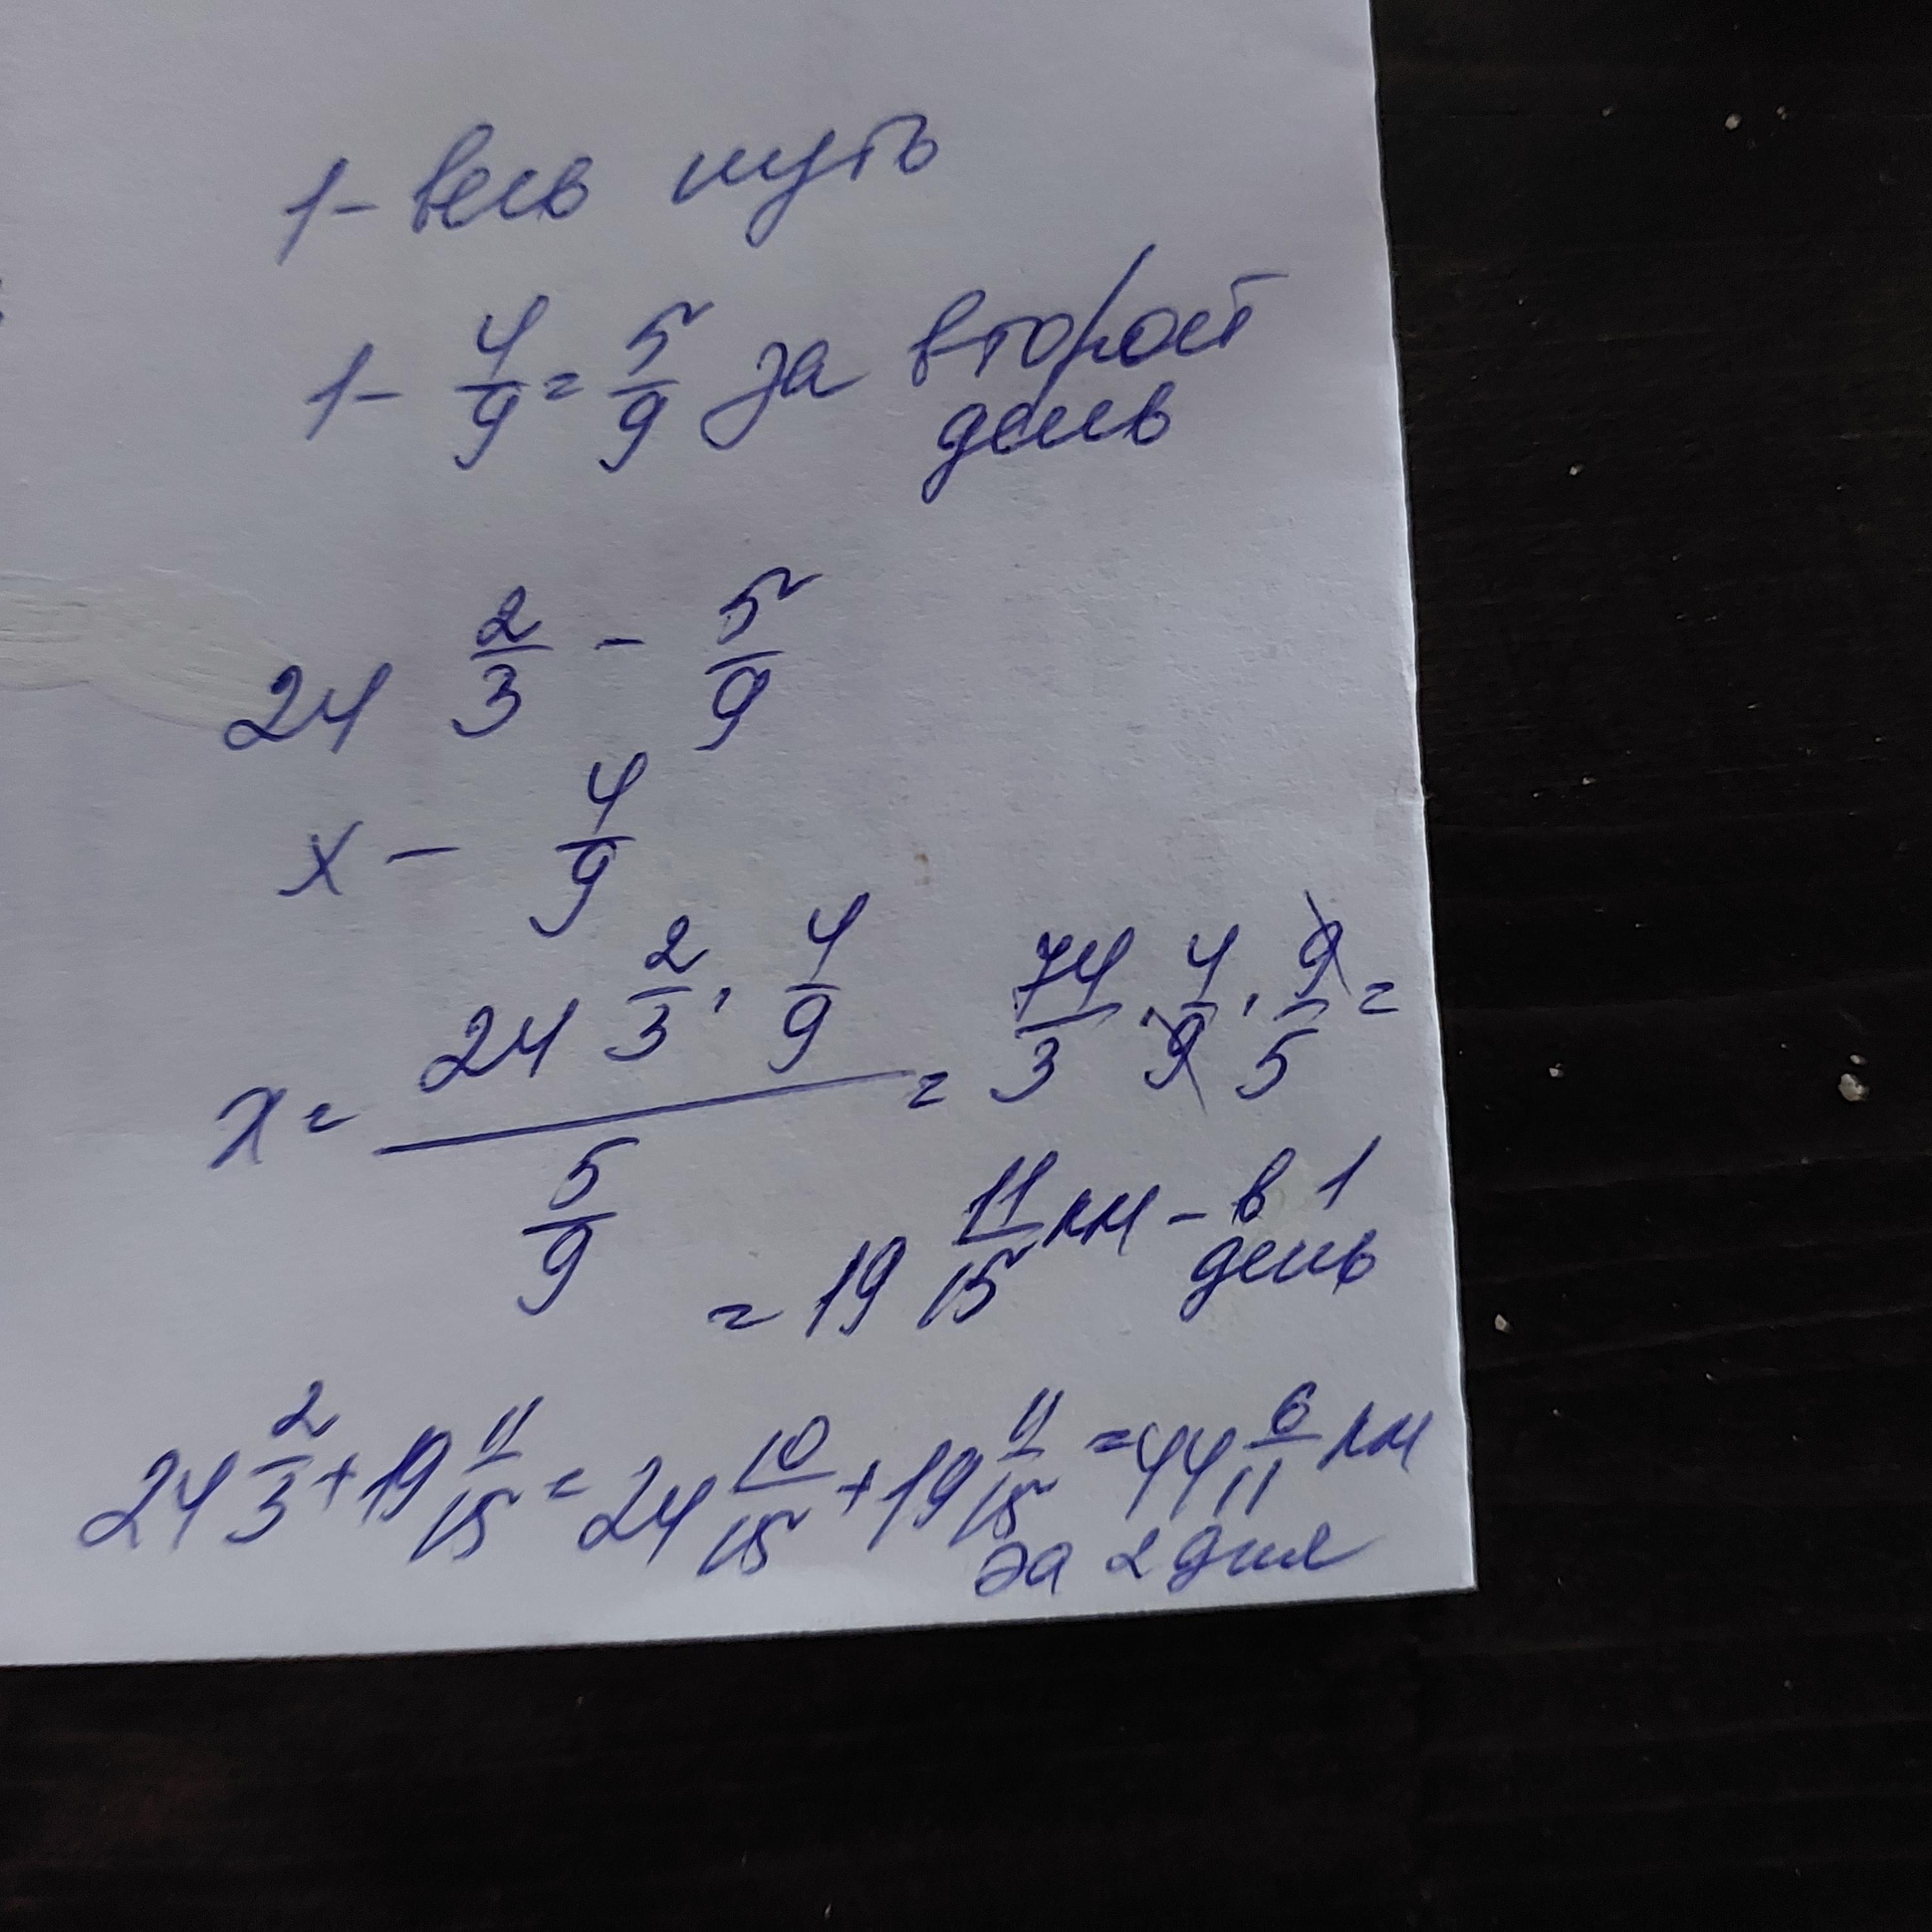 1 - весь путь
1 - 4/9 = 5/9 за второй
день
24 2/3 - 5/9
х - 4/9
х = (24 2/3 · 4/9) / (5/9) = 74/3 · 4/9 · 9/5 =
= 19 11/15 км - в 1
день
24 2/3 + 19 11/15 = 24 10/15 + 19 11/15 = 44 6/11 км
за 2 дня